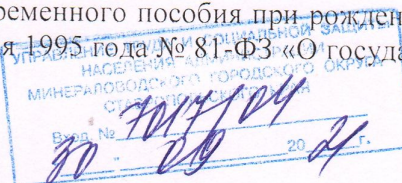 ременного пособия при рожден
я 1995 года № 81-ФЗ «О госуда
УПРАВЛЕНИЕ СОЦИАЛЬНОЙ ЗАЩИТЫ
НАСЕЛЕНИЯ
МИНЕРАЛОВОДСКОГО ГОРОДСКОГО ОКРУГА
Вход. № 7017/04
30 " 09 20 21 г.